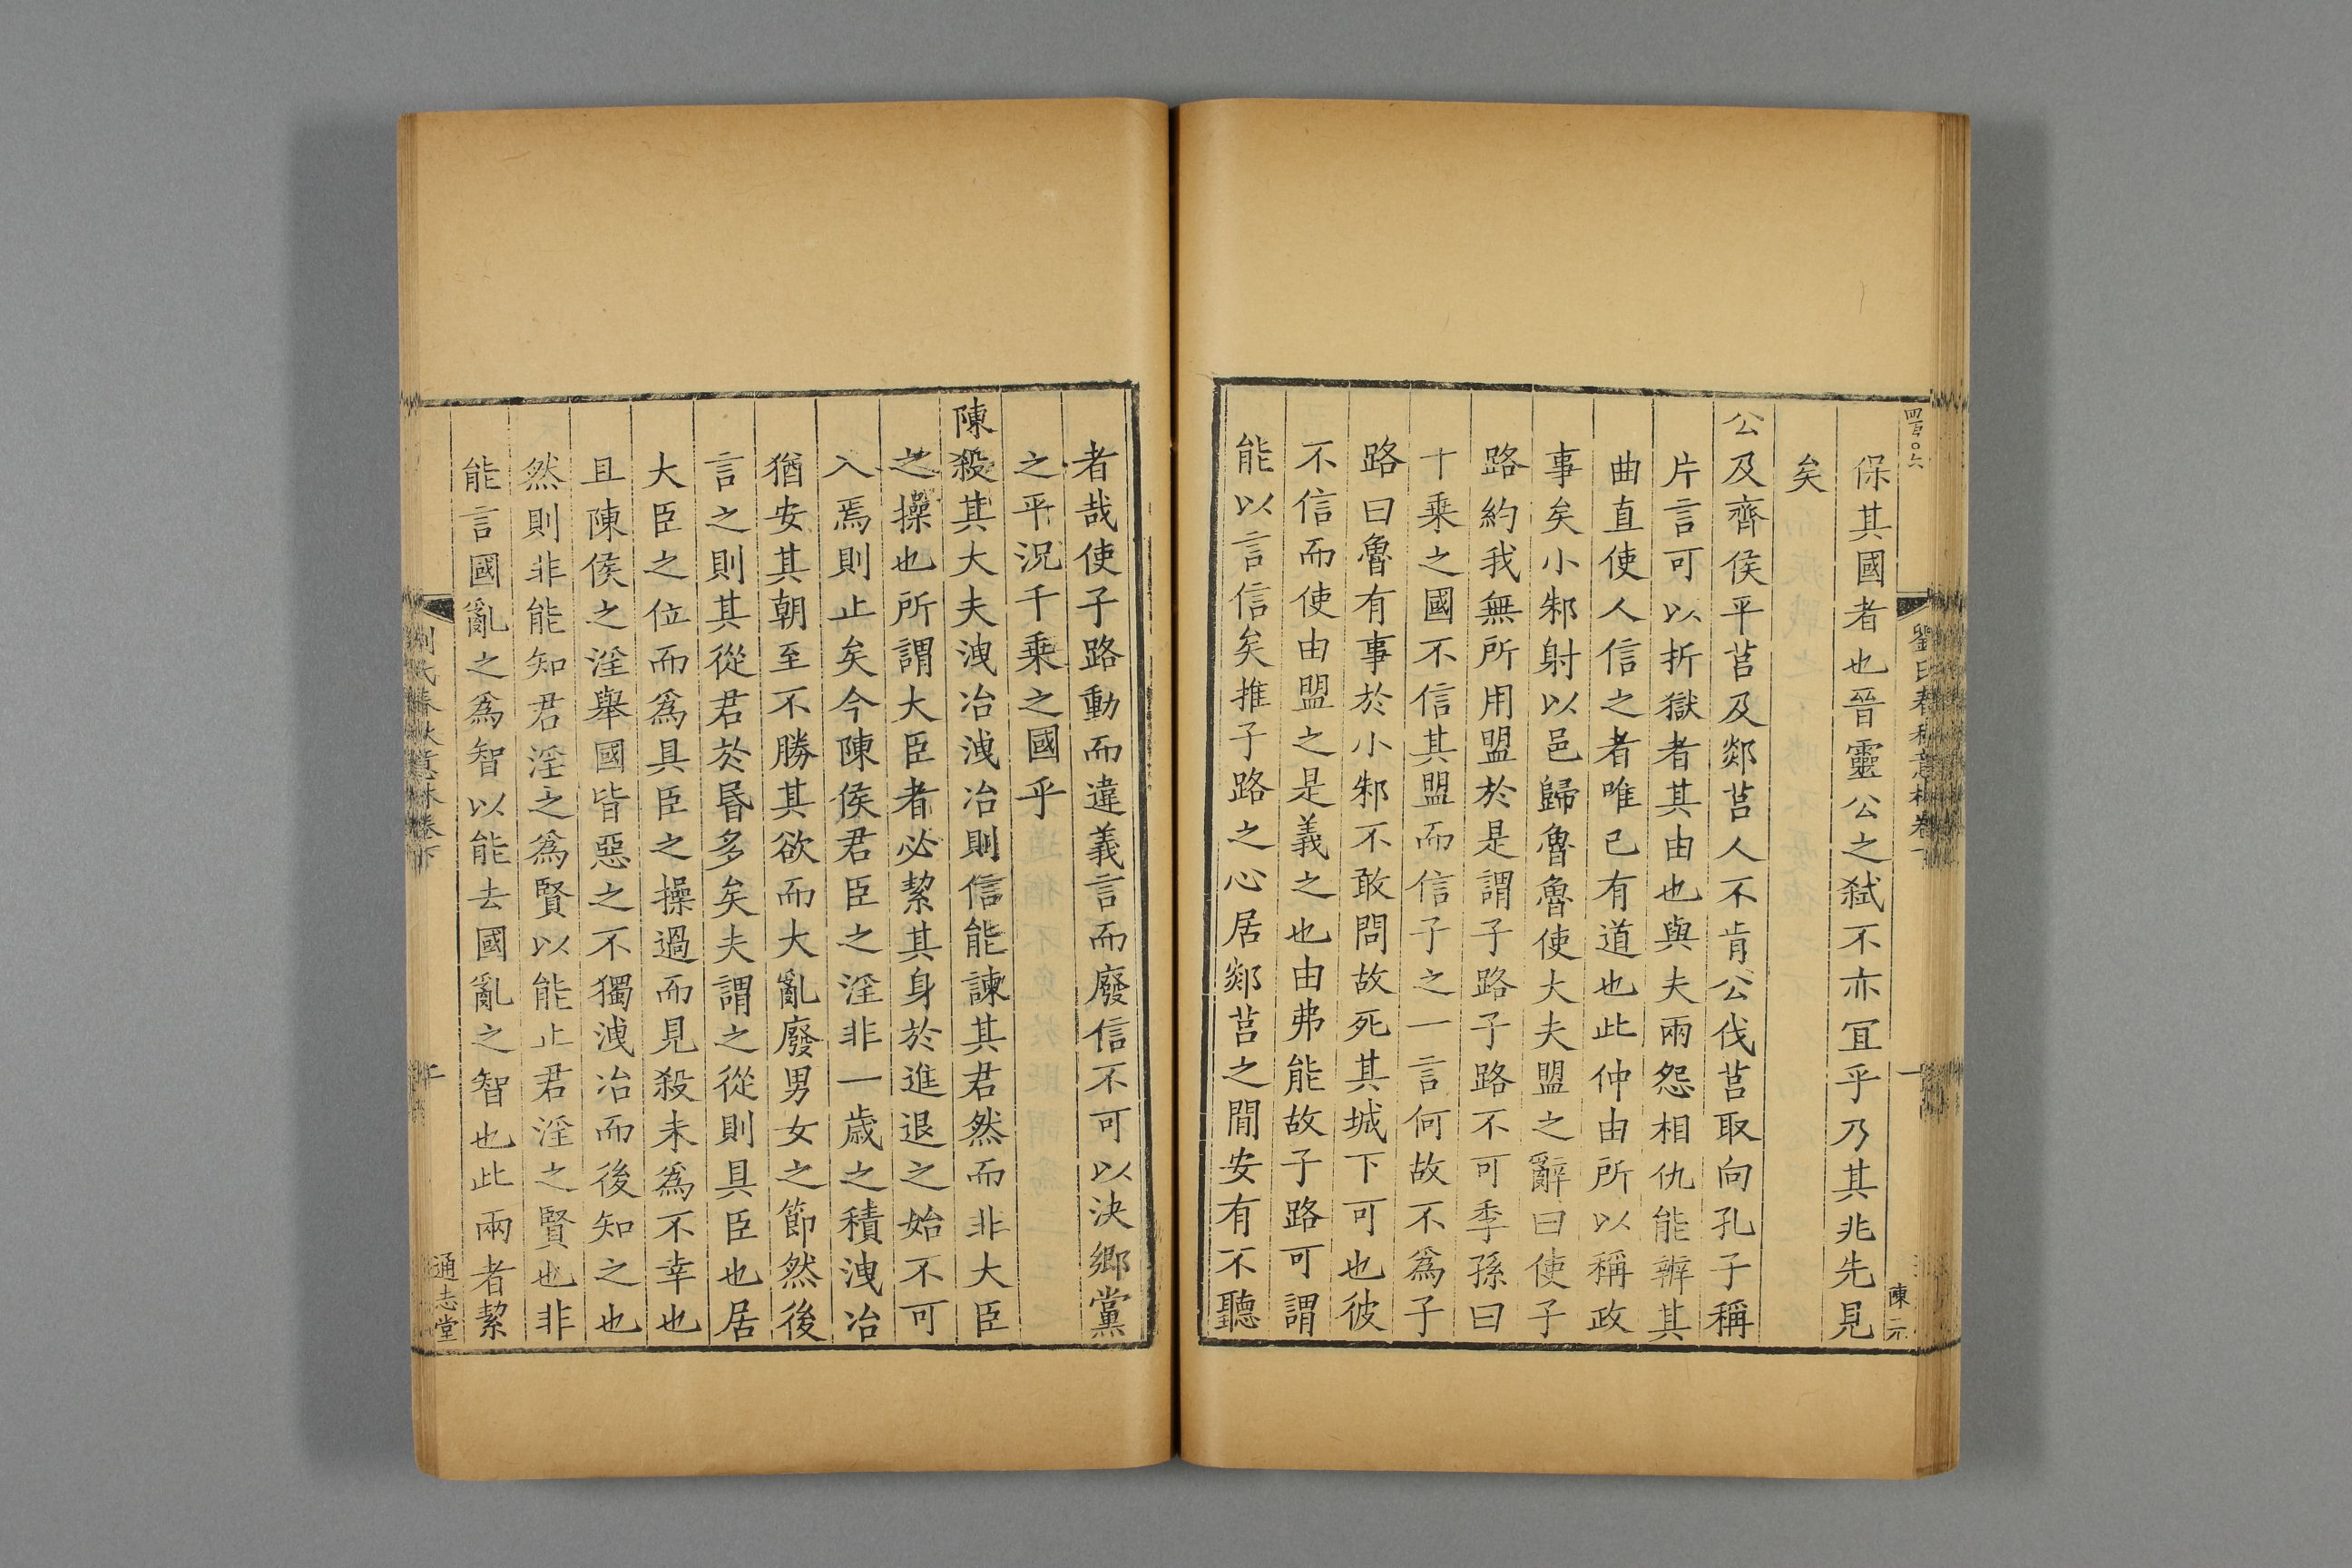 保其國者也晉靈公之弑不亦宜乎乃其非先見
矣
公及齊侯平莒及郯莒人不肯公伐莒取向孔子稱
片言可以折獄者其由也與夫兩怨相仇能辨其
曲直使人信之者唯己有道也此仲由所以稱政
事矣小邾射以邑歸魯魯使大夫盟之辭曰使子
路約我無所用盟於是謂子路子路不可季孫曰
千乗之國不信其盟而信子之一言何故不爲子
路曰魯有事於小邾不敢問故死其城下可也彼
不信而使由盟之是義之也由弗能故子路可謂
能以言信矣推子路之心居郯莒之閒安有不聽
者哉使子路動而違義言而廢信不可以決鄉黨
之平況千乗之國乎
陳殺其大夫洩冶洩冶則信能諫其君然而非大臣
之操也所謂大臣者必絜其身於進退之始不可
入焉則止矣今陳侯君臣之淫非一歳之積洩冶
猶安其朝至不勝其欲而大亂廢男女之節然後
言之則其從君於昬多矣夫謂之從則具臣也居
大臣之位而爲具臣之操過而見殺未爲不幸也
且陳侯之淫舉國皆惡之不獨洩冶而後知之也
然則非能知君淫之爲賢以能止君淫之賢也非
能言國亂之爲智以能去國亂之智也此兩者絜
劉氏春秋意林卷下
通志堂